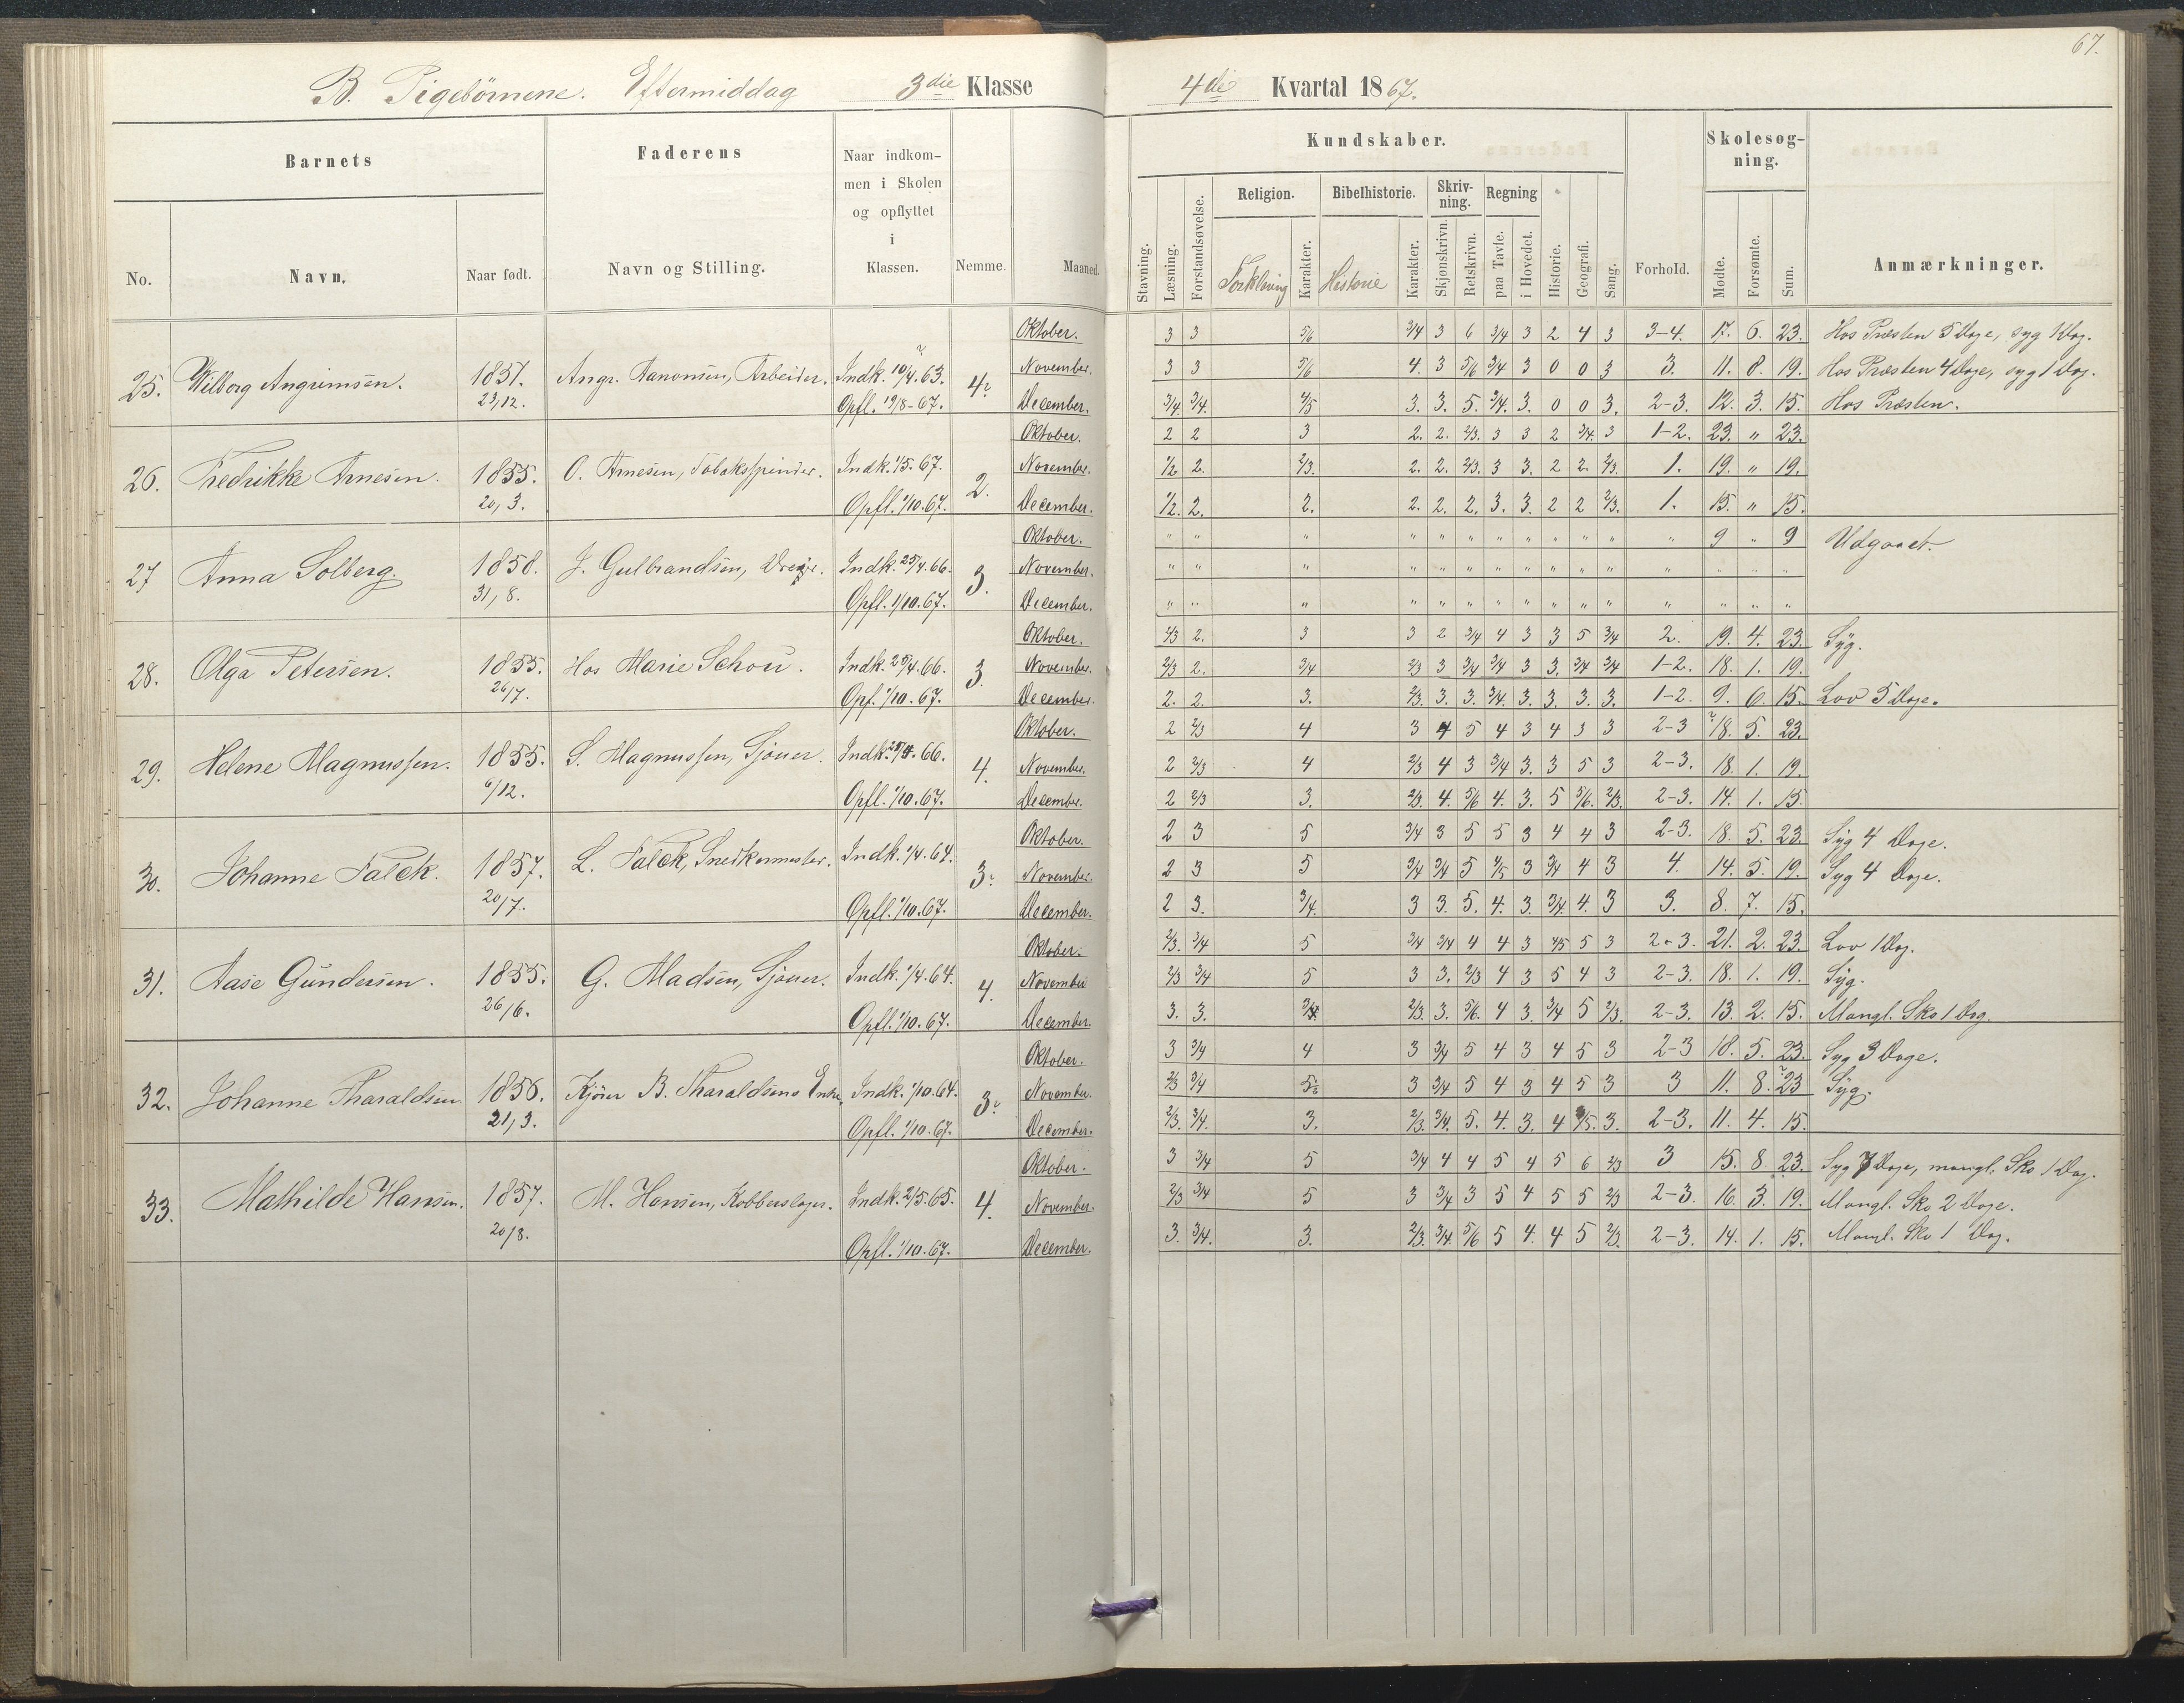 67.
B. Pigebörnene. Eftermiddag 3die Klasse 4de Kvartal 1867.
Barnets Faderens Naar indkommen i Skolen og opflyttet i Klassen. Nemme. Maaned. Kundskaber. Forhold. Skolesøgning. Anmærkninger.
No. Navn. Naar født. Navn og Stilling. Stavning. Læsning. Forstandsøvelse. Religion. Forklaring Karakter. Bibelhistorie. Historie Karakter. Skrivning. Skjønskrivn. Retskrivn. Regning paa Tavle. i Hovedet. Historie. Geografi. Sang. Mødte. Forsømte. Sum.
Oktober. 3 3 5/6 3/4 3 6 3/4 3 2 4 3 3-4. 17. 6. 23. Hos Præsten 5 Dage, syg 1 Dag.
25. Wilborg Angrimsen. 1851. Angr. Aanonsen, Arbeider. Indk. 10/4. 63. 4 November. 3 3 5/6 4. 3 5/6 3/4 3 0 0 3 3. 11. 8. 19. Hos Præsten 4 Dage, syg 1 Dag.
23/12. Opfl. 19/8-67. December. 3/4. 3/4. 4/5 3. 3. 5. 3/4. 3. 0 0 3. 2-3. 12. 3. 15. Hos Præsten.
Oktober. 2 2 3 2. 2. 2/3. 3 3 2 3/4. 3 1-2. 23. " 23.
26. Fredrikke Arnesen. 1855. O. Arnesen, Tobakspinder. Indk. 1/5. 67. 2. November. 1/2 2. 2/3. 2. 2. 2/3. 3 3. 2 2. 2/3. 1. 19. " 19.
20, 3. Opfl. 1/10. 67. December. 1/2. 2. 2. 2. 2. 2. 3. 3. 2 2 2/3. 1. 15. " 15.
Oktober. " " " " " " " " " " " " 9 " 9 Udgaaet.
27 Anna Solberg. 1858. J. Gulbrandsen, Indk. 25/4. 66. 3. November. " " " " " " " " " " " " " " "
31, 8. Opfl. 1/10. 67. December. " " " " " " " " " " " " " " "
Oktober. 2/3 2. 3 3 2 3/4 4 3 3 5 3/4 2. 19. 4. 23. Syg.
28. Olga Petersen. 1855. Hos Marie Schou. Indk. 25/4. 66. 3. November. 2/3 2. 3/4 2/3 3 3/4 3/4 3 3. 3/4 3/4 1-2. 18. 1. 19.
26/7. Opf. 1/10. 67. December. 2. 2. 3. 2/3. 3. 3. 3/4. 3. 3. 3. 3. 1-2. 9. 6. 15. Lov 5 Dage.
Oktober. 2 2/3 4 3 4 5 4 3 4 3 3 2-3 18. 5. 23.
29. Helene Magnussen. 1855. S. Magnussen, Sjöuer. Indk. 25/4. 66. 4. November. 2 2/3 4 2/3 4 3 3/4 3. 3 5 3 2-3. 18. 1. 19.
6/12. Opfl. 1/10. 67. December. 2 2/3 3. 2/3. 4. 5/6 4. 3. 5 5/6. 2/3. 2-3. 14. 1. 15.
Oktober. 2 3 5 3/4 3 5 5 3 4 4 3 2-3. 18. 5. 23. Syg 4 Dage.
30. Johanne Falck. 1857. L. Falck, Snedkermester. Indk. 1/4. 64. 3 November. 2 3 5 3/4 3/4 5 4/5 3 3/4 4 3 4. 14. 5. 19. Syg 4 Dage.
20/7. Opfl. 1/10. 67. December. 2 3. 3/4. 3 3. 5. 4. 3. 3/4. 4. 3 3. 8. 7. 15.
Oktober. 2/3. 3/4 5 3/4 3/4 4 4 3 4/5 5 3 2-3. 21. 2. 23. Lov 1 Dag.
31. Aase Gundersen. 1855. G. Madsen, Sjöuer. Indk. 1/4. 64. 4. November 2/3 3/4 5 3 3. 2/3 4 3 5 4 3 2-3. 18. 1. 19. Syg.
26/6. Opfl. 1/10. 67. December. 3. 3. 3/4. 2/3. 3. 5/6. 4 3. 3/4 5 2/3. 2-3. 13. 2. 15. Mangl. Sko 1 Dag.
Oktober. 3 3/4 4 3 3/4 5 4 3 4 5 3 2-3 18. 5. 23. Syg 3 Dage.
32. Johanne Tharaldsen 1856. Kjörer B. Tharaldsens Enke. Indk. 1/10. 64. 3 November. 2/3 3/4 5 3 3/4 5 4 3 4 5 3 3 11. 8. 23 Syg.
21, 3. Opfl. 1/10. 67. December. 2/3. 3/4. 3. 2/3. 3/4. 5. 4. 3. 4 4/5. 3. 2-3. 11. 4. 15.
Oktober. 3 3/4 5 3/4 4 4 5 4 5 6 2/3 3 15. 8. 23. Syg 7 Dage, mangl. Sko 1 Dag.
33. Mathilde Hansen. 1857. M. Hansen, Kobberslager. Indk. 2/5. 65. 4. November. 2/3 3/4 5 3 3/4 3 5 4 5 5 2/3 2-3. 16. 3. 19. Mangl. Sko 2 Dage.
20/8. Opfl. 1/10. 67. December. 3. 3/4. 3. 2/3. 3/4. 5/6 5 4. 4 5 2/3. 2-3. 14. 1. 15. Mangl. Sko 1 Dag.